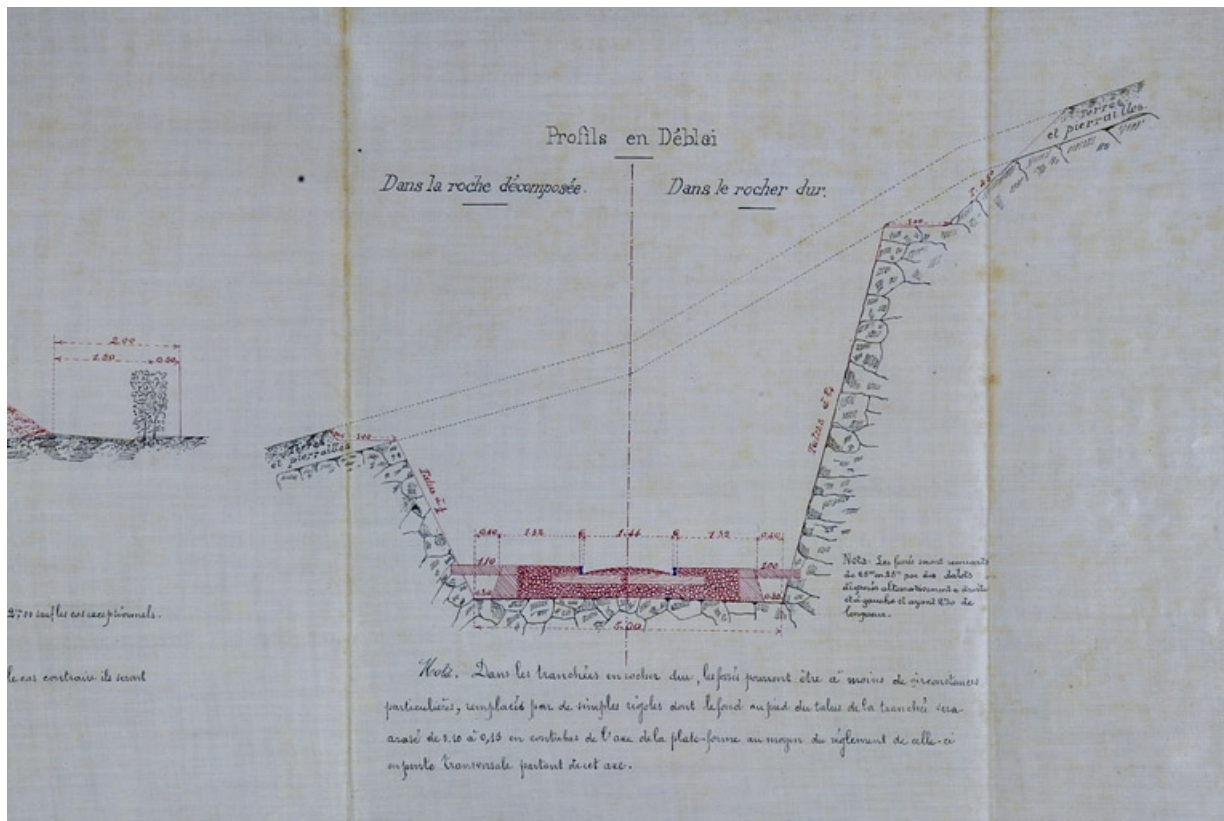 Profils en Déblai
Dans la roche décomposée.
Dans le rocher dur.
Terres
et pierrailles
1.00
2.00
1.50 0.50
Terres
et pierrailles
1.00
Talus à
Talus à
0.40 1.32 1.44 1.32 0.40
1.10 1.00
0.30 0.30
5.00
Nota: Les fossés seront
de 25m en 25m par des
disposés alternativement à droite
et à gauche et ayant de
longueur.
sauf les cas exceptionnels.
le cas contraire ils seront
Nota. Dans les tranchées en rocher dur, les fossés pourront être à moins de circonstances
particulières, remplacés par de simples rigoles dont le fond au pied du talus de la tranchée sera
arasé de 0.10 à 0,15 en contrebas de l'axe de la plate-forme au moyen du règlement de celle-ci
en pente transversale partant de cet axe.